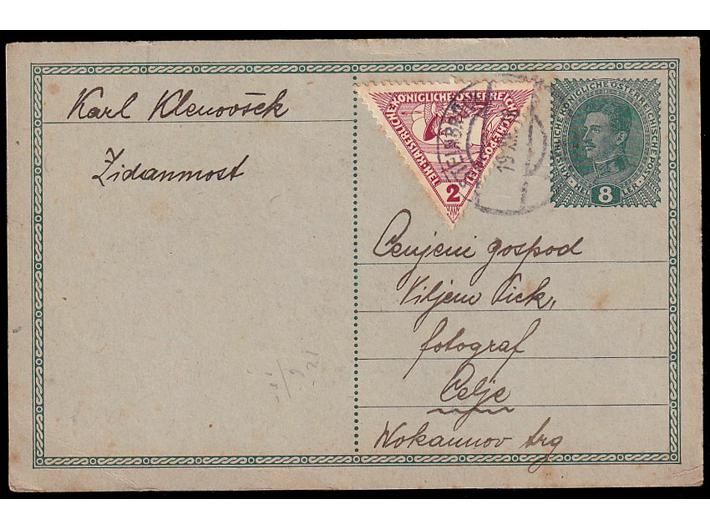 Karl Klenovšek
Zidanmost
KAISERLICHE KÖNIGLICHE ÖSTERREICHISCHE POST
2
19
KAISERLICHE KÖNIGLICHE ÖSTERREICHISCHE POST
8
Cenjeni gospod
Viljem Pick,
fotograf
Celje
Wokaunov trg